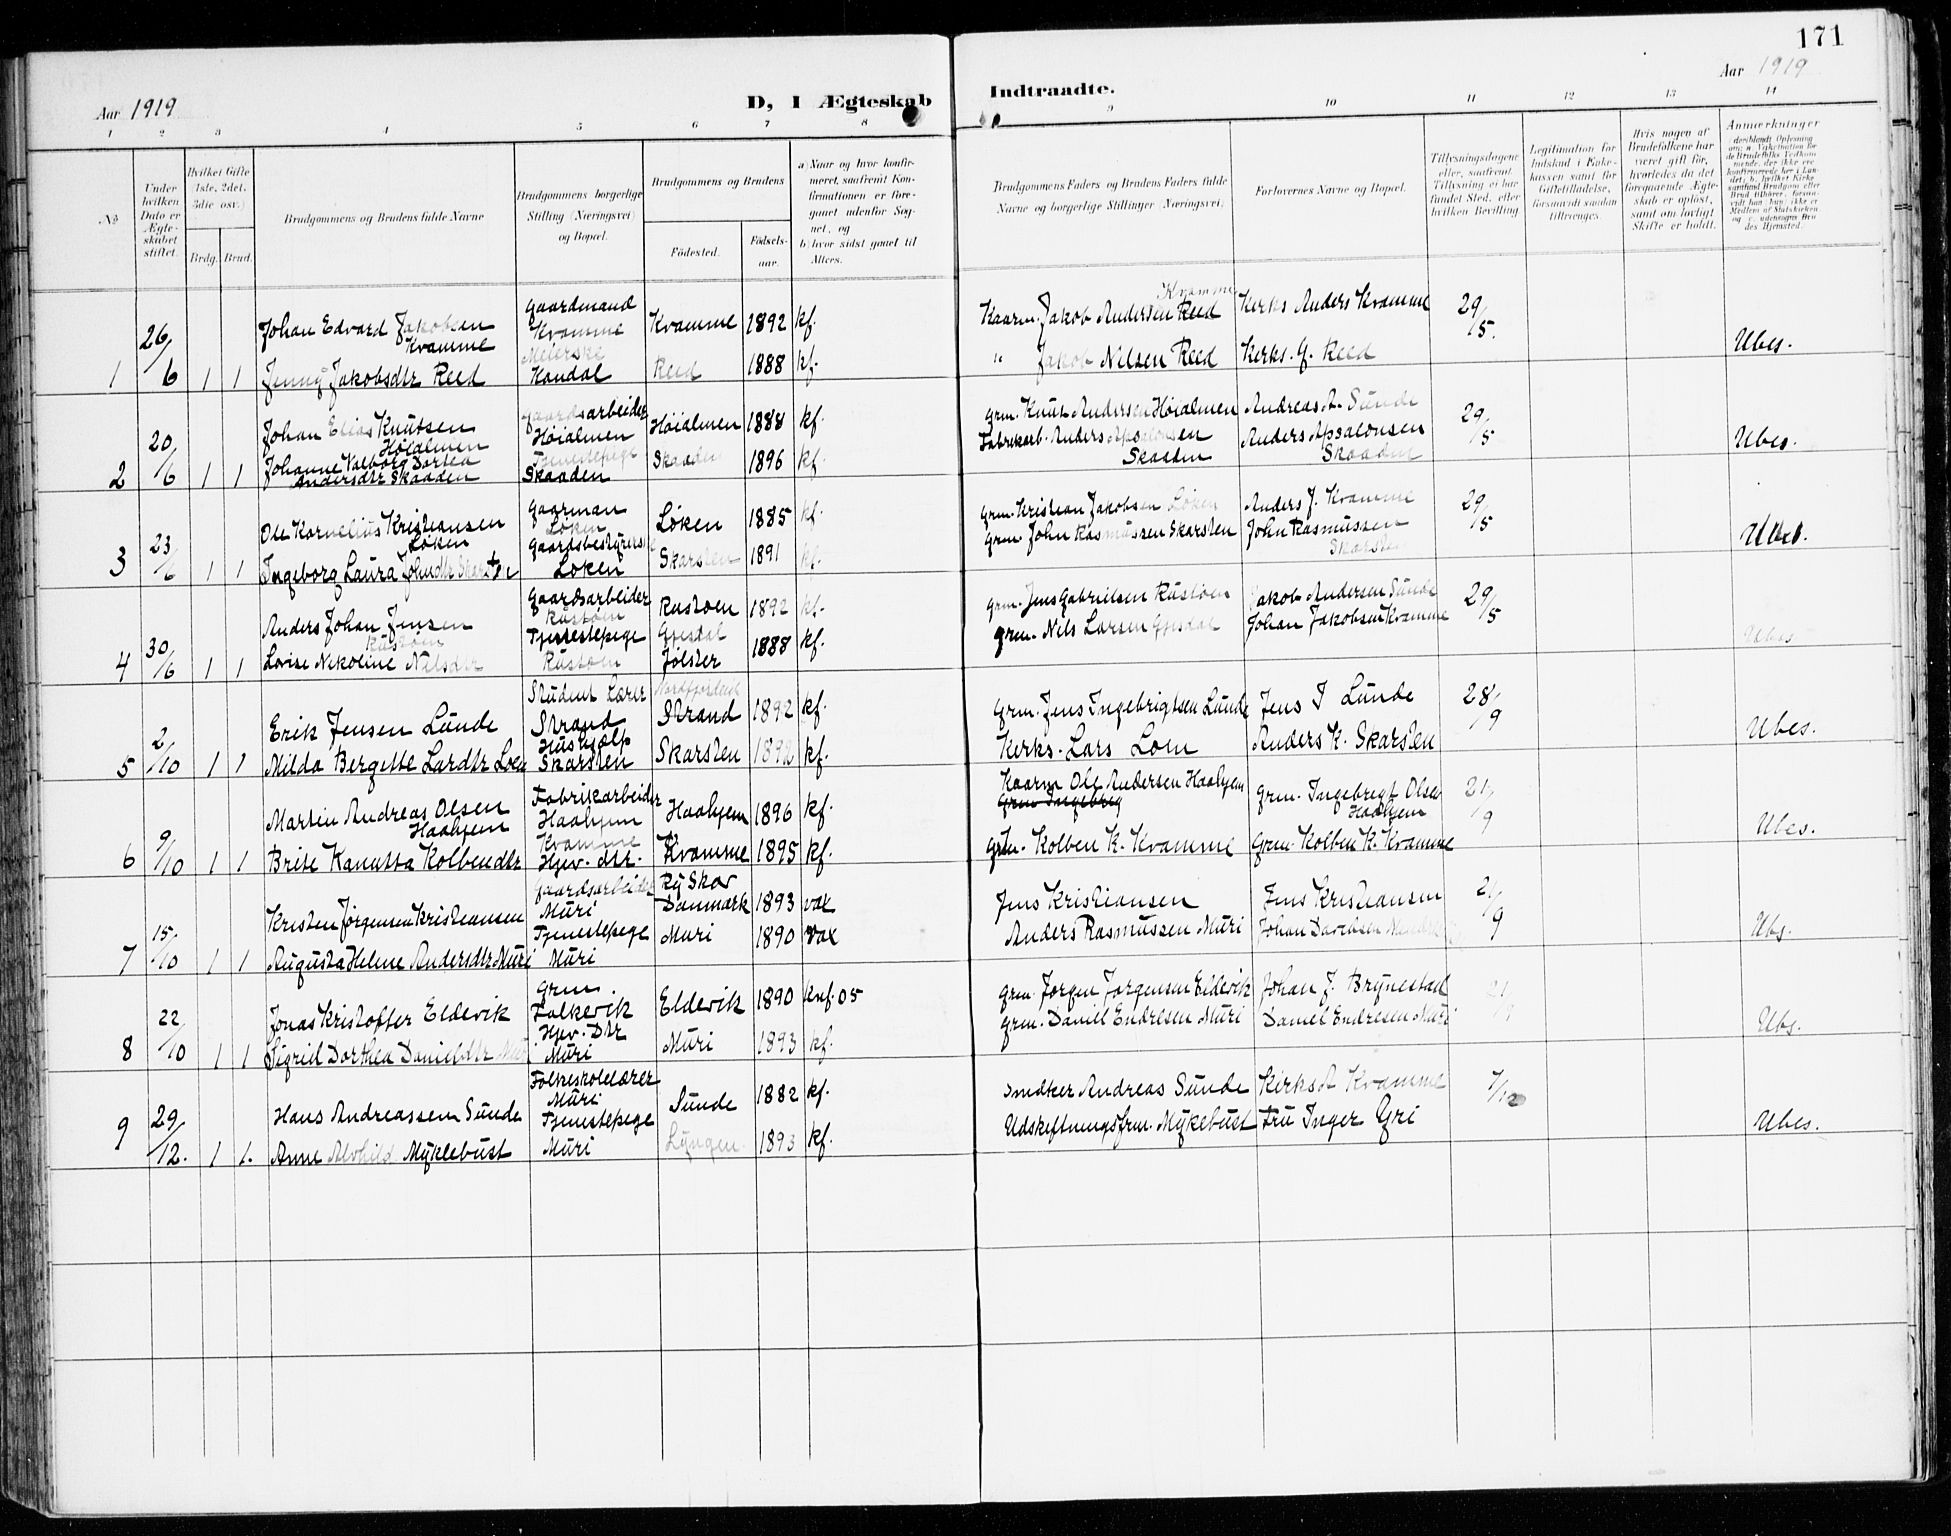 171
Aar 1919
D, I Ægteskab
Indtraadte.
Aar 1919
1 2 3 4 5 6 7 8 9 10 11 12 13 14
No
Under hvilken Dato er Ægteskabet stiftet.
Hvilket Gifte 1ste, 2det, 3die osv.)
Brdg. Brud.
Brudgommens og Brudens fulde Navne
Brudgommens borgerlige Stilling (Næringsvei) og Bopæl.
Brudgommens og Brudens
Födested.
Födsels-aar.
a) Naar og hvor konfirmeret, saafremt Konfirmationen er foregaaet udenfor Sognet, og
b) hvor sidst gaaet til Alters.
Brudgommens Faders og Brudens Faders fulde Navne og borgerlige Stillinger (Næringsvei).
Forlovernes Navne og Bopæl.
Tillysningsdagene eller, saafremt Tillysning ei har fundet Sted, efter hvilken Bevilling
Legitimation for Indskud i Enkekassen samt for Giftetilladelse, forsaavidt saadan tiltrænges.
Hvis nogen af Brudefolkene har været gift før, hvorledes da det foregaaende Ægteskab er oplöst, samt om lovligt Skifte er holdt.
Anmærkninger
1 26/6 1 1
Johan Edvard Jakobsen Kvamme
Gaardmand Kvamme
Kvamme 1892 kf.
Kaarm. Jakob Andersen Reed Kvamme
Kerks Anders Kvamme
29/5.
Jenny Jakobsdtr Reed
Meierske Kandal
Reed 1888 kf.
" Jakob Nilsen Reed
Kerks. G. Reed
Ubes.
2 20/6 1 1
Johan Elias Knutsen Høialmen
Gaardsarbeider Høialmen
Høialmen 1888 kf.
Grm. Knut Andersen Høialmen
Andreas A. Sunde
29/5
Johanne Valborg Dortea Andersdtr Skaaden
Tjenestepige Skaaden
Skaaden 1896 kf.
Fabrikarb. Anders Apsalonsen Skaaden
Anders Apsalonsen Skaaden
Ubes.
3 23/6 1 1
Ole Kornelius Kristiansen Løken
Gaarman Løken
Løken 1885 kf.
Grm. Kristian Jakobsen Løken
Anders J. Kvamme
29/5
Ingeborg Laura Johndtr Skarsten
Gaardsbestyrerske Løken
Skarsten 1891 kf.
Grm. John Rasmussen Skarsten
John Rasmussen Skarsten
Ubes.
4 30/6 1 1
Anders Johan Jensen Rustøen
Gaardsarbeider Rustøen
Rustøen 1892 kf.
Grm. Jens Gabrielsen Rustøen
Jakob Andersen Sunde
29/5
Lovise Nikoline Nilsdtr
Tjenestepige Rustøen
Gjesdal Jølster 1888 kf.
Grm. Nils Larsen Gjesdal
Johan Jakobsen Kvamme
Ubes
5 2/10 1 1
Erik Jensen Lunde
Student Lærer Strand
Nordfjordeid Strand 1892 kf.
Grm. Jens Ingebrigtsen Lunde
Jens I Lunde
28/9
Milda Bergitte Larsdtr Loen
Hushjælp Skarsten
Skarsten 1892 kf.
Kerks. Lars Loen
Anders K. Skarsten
Ubes.
6 9/10 1 1
Martin Andreas Olsen Haahjem
Fabrikarbeider Haahjem
Haahjem 1896 kf.
Kaarm Ole Andersen Haahjem
Grm Ingebrig
Grm. Ingebregt Olsen Haahjem
21/9
Brite Kanutta Kolbendtr
Kvamme Hjv. dtr.
Kvamme 1895 kf.
Grm. Kolben K. Kvamme
Grm. Kolben K. Kvamme
Ubes.
7 15./10 1 1
Kristen Jørgensen Kristiansen
Gaardsarbeider Muri
Ry Skov Danmark 1893 vax
Jens Kristiansen
Jens Kristiansen
21/9
Augusta Helene Andersdtr Muri
Tjenestepige Muri
Muri 1890 vax
Anders Rasmussen Muri
Johan Davidsen
Ubs.
8 22/10 1 1
Jonas Kristoffer Eldevik
Grm. Falkevik
Eldevik 1890 knf. 05
Grm. Jørgen Jørgensen Eldevik
Johan J. Brynestad
21/
Sigrid Dorthea Danielsdtr Muri
Hjv. Dtr Muri
Muri 1893 kf.
Grm. Daniel Endresen Muri
Daniel Endresen Muri
Ubs.
9 29/12. 1 1.
Hans Andreassen Sunde
Folkeskolelærer Muri
Sunde 1882 kf.
Snedker Andreas Sunde
Kirks A Kvamme
7/12
Anne Alvhild Myklebust
Tjenestepige Muri
Lyngen 1893 kf.
Udskiftningsfrm. Myklebust
Fru Inger Gri
Ubes.